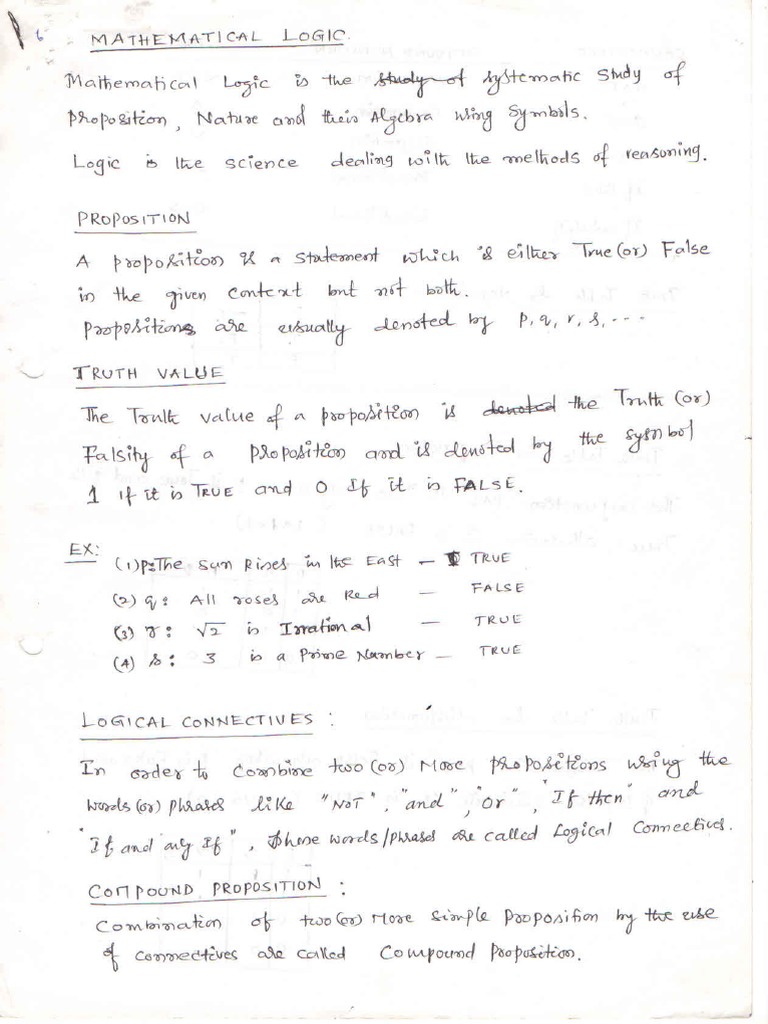 6
MATHEMATICAL LOGIC.
Mathematical Logic is the study of systematic study of
proposition, Nature and their Algebra using symbols.
Logic is the science dealing with the methods of reasoning.
PROPOSITION
A proposition is a statement which is either True (or) False
in the given context but not both.
propositions are usually denoted by p, q, r, s, ---
TRUTH VALUE
The Truth value of a proposition is denoted the Truth (or)
Falsity of a proposition and is denoted by the symbol
1 if it is TRUE and 0 If it is FALSE.
EX:
(1) p: The sun Rises in the East - TRUE
(2) q: All roses are Red - FALSE
(3) r: √2 is Irrational - TRUE
(4) s: 3 is a Prime Number - TRUE
LOGICAL CONNECTIVES :
In order to combine two (or) More propositions using the
words (or) phrases like "NOT", "and", "Or", "If then" and
"If and only If", these words/phrases are called Logical Connectives.
COMPOUND PROPOSITION :
Combination of two (or) More simple proposition by the use
of connectives are called Compound proposition.